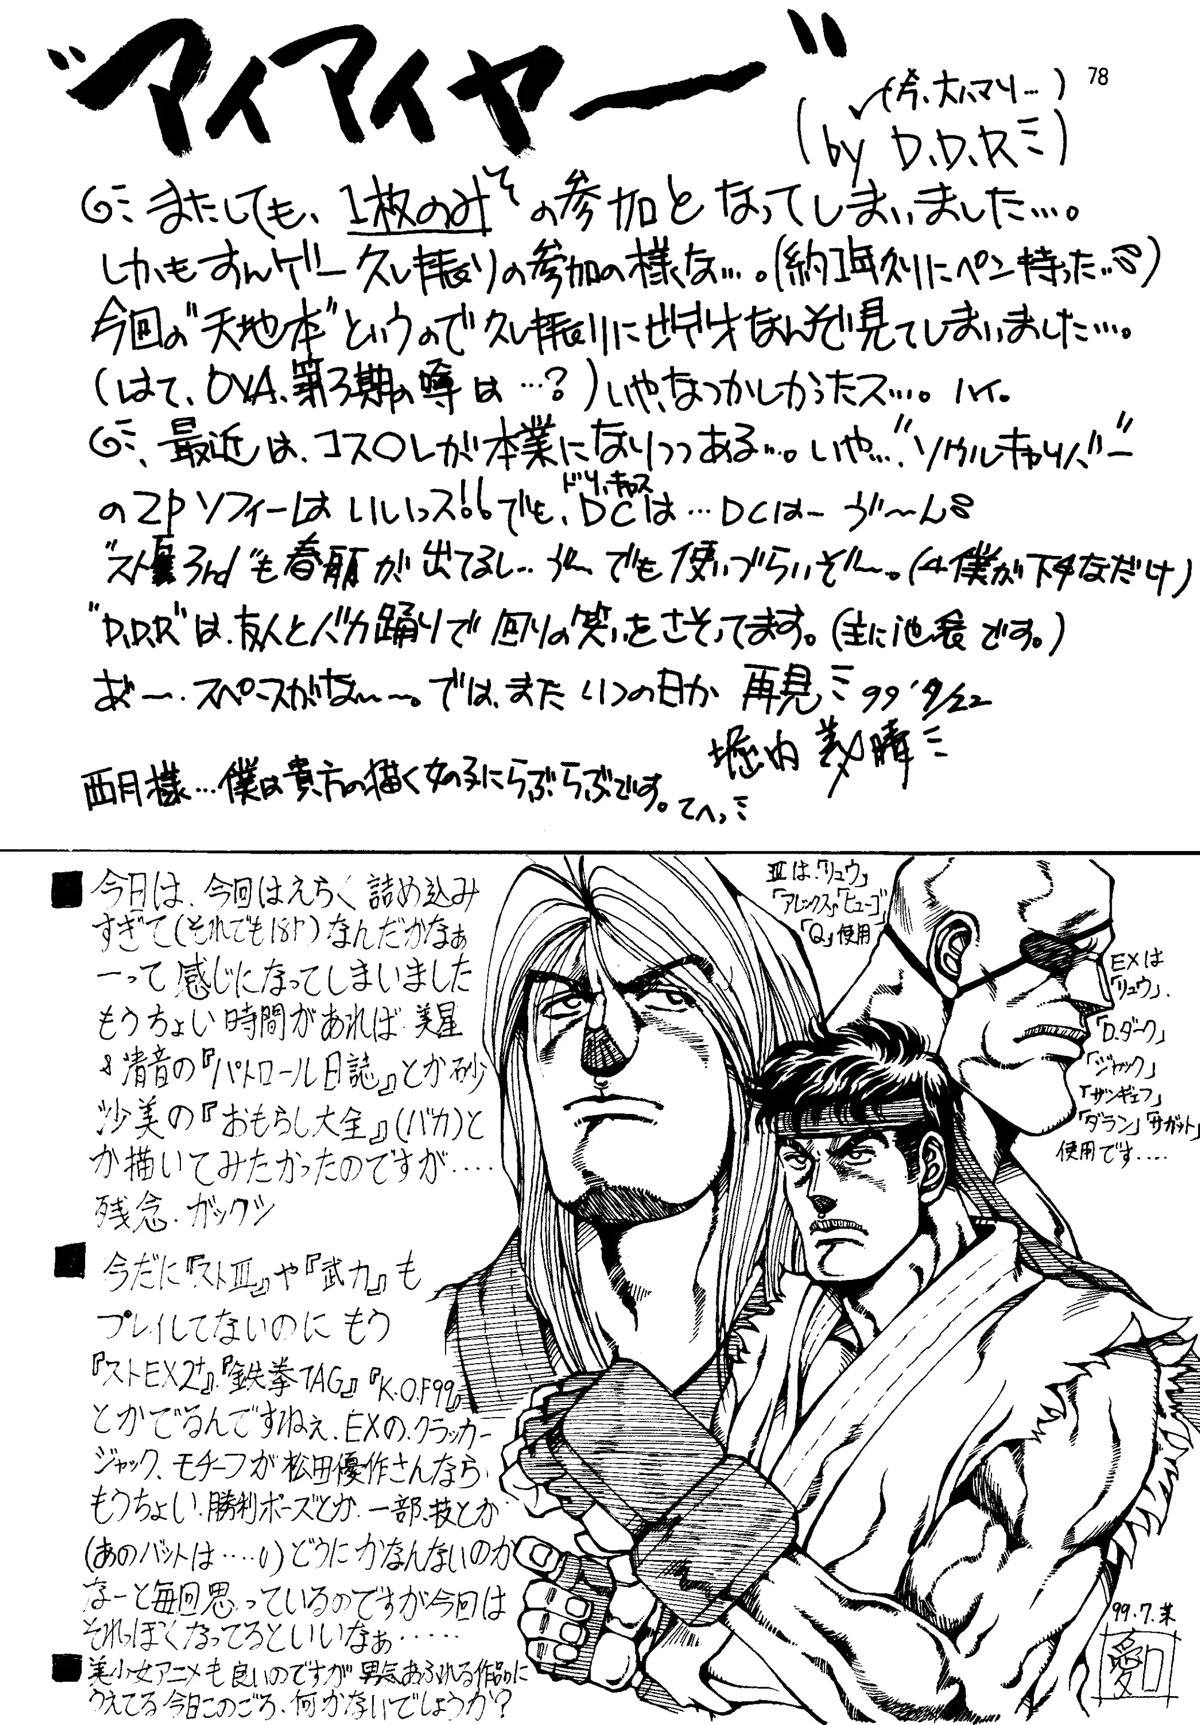 "マイアイヤー"
78
(今、大ハマリ…)
(by D.D.R ミ)
またしても、1枚のみ の参加となってしまいました…。
しかもすんゲー久し振りの参加の様な…。(約1年久りにペン持った…)
今回の"天地本"というので久し振りにビデオなんぞ見てしまいました…。
(はて、OVA、第3期の噂は…?)いや、なつかしかったス…。ハイ。
最近は、コス○レが本業になりつつある…。いや…、"ソウルキャリバー"
の2Pソフィーはいいっス!!でも、DCは…DCはーゔ〜ん
ドリ、キャス
"スト 3rd"も春麗が出てるし…ゔ〜でも使いづらいぞ〜。(←僕が下手なだけ)
"D.D.R"は、友人とバカ踊りで回りの笑いをさそってます。(主に池袋です。)
あ゛ー、スペースがな〜〜。では、また いつの日か 再見ミ 99'9/22
堀内 美晴ミ
西月様…僕は貴方の描く女の子にらぶらぶです。てへっミ
■今日は、今回はえらく詰め込み
すぎて(それでも18P)なんだかなぁ
ーって感じになってしまいました
もうちょい時間があれば 美星
&清音の『パトロール日誌』とか砂
沙美の『おもらし大全』(バカ)と
か描いてみたかったのですが‥‥
残念.ガックシ
■今だに『ストⅢ』や『武力』も
プレイしてないのに もう
『ストEX2+』『鉄拳TAG』『K.O.F99』
とかでるんですねぇ.EXの、クラッカー
ジャック、モチーフが松田優作さんなら
もうちょい.勝利ポーズとか.一部、技とか
(あのバットは‥‥い)どうにかなんないのか
なーと毎回思っているのですが今回は
それっぽくなってるといいなぁ‥‥‥
■美少女アニメも良いのですが 男気あふれる作品に
うえてる今日このごろ、何かないでしょうか?
Ⅲは.「リュウ」
「アレックス」「ヒューゴ」
「Q」使用
EXは
「リュウ」.
「D.ダーク」
「ジャック」
「ザンギェフ」
「ダラン」「サガット」
使用です‥‥
99.7.末